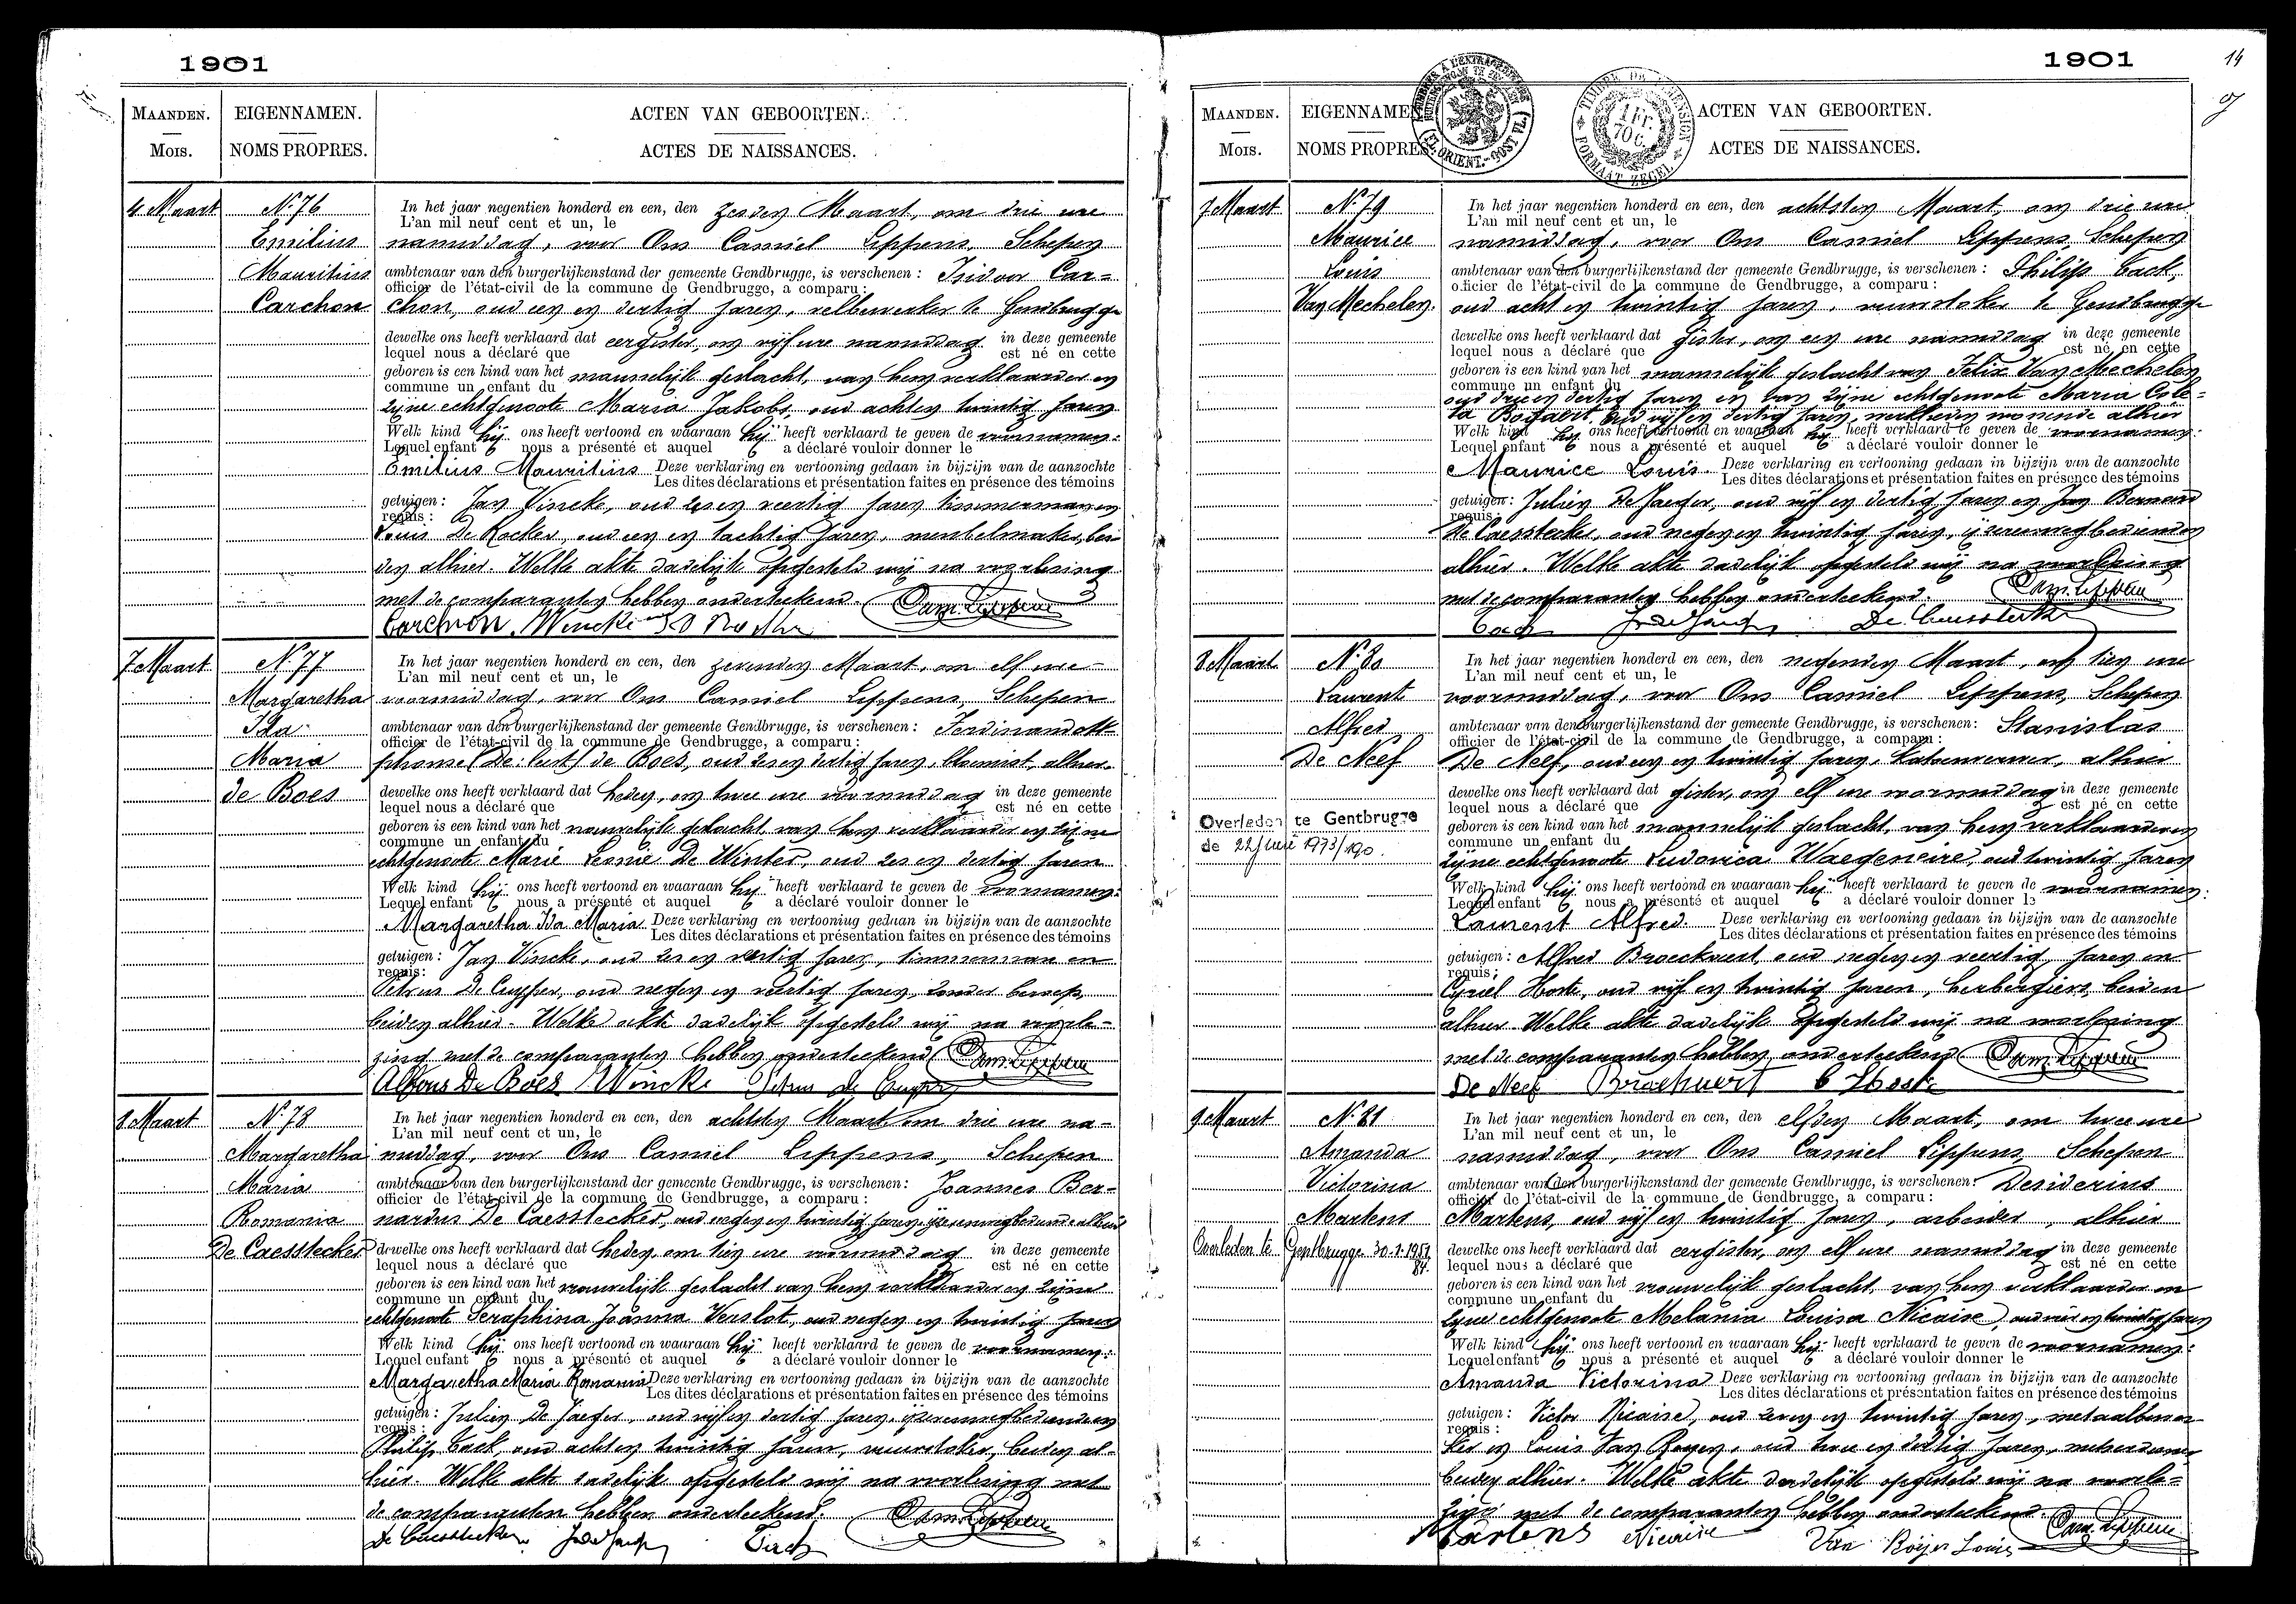 1901
MAANDEN.
Mois.
EIGENNAMEN.
NOMS PROPRES.
ACTEN VAN GEBOORTEN.
ACTES DE NAISSANCES.
4 Maart
N.º 76
Emilius
Mauritius
Carchon
In het jaar negentien honderd en een, den zesden Maart, om drie ure
L'an mil neuf cent et un, le
namiddag, voor Ons Camiel Lippens, Schepen
ambtenaar van den burgerlijkenstand der gemeente Gendbrugge, is verschenen : Isidoor Car=
officier de l'état-civil de la commune de Gendbrugge, a comparu :
chon, oud een en dertig jaren, velbewerker te Gendbrugge
dewelke ons heeft verklaard dat eergister, om vijf ure namiddag in deze gemeente
lequel nous a déclaré que est né en cette
geboren is een kind van het mannelijk geslacht, van hem verklaarder en
commune un enfant du
zijne echtgenoote Maria Jakobs, oud acht en twintig jaren
Welk kind hij ons heeft vertoond en waaraan hij heeft verklaard te geven de voornamen:
Lequel enfant nous a présenté et auquel a déclaré vouloir donner le
Emilius Mauritius Deze verklaring en vertooning gedaan in bijzijn van de aanzochte
Les dites déclarations et présentation faites en présence des témoins
getuigen : Jan Vincke, oud zes en veertig jaren timmerman en
requis :
Louis De Rocker, oud een en tachtig jaren, meubelmaker, bei
den alhier. Welke akte dadelijk opgesteld wij na voorlezing
met de comparanten hebben onderteekend. Cam. Lippens
Carchon. Wincke
7 Maart
N.º 77
Margaretha
Ida
Maria
de Boes
In het jaar negentien honderd en een, den zevenden Maart, om elf ure
L'an mil neuf cent et un, le
voormiddag, voor Ons Camiel Lippens, Schepen
ambtenaar van den burgerlijkenstand der gemeente Gendbrugge, is verschenen : Ferdinand Al-
officier de l'état-civil de la commune de Gendbrugge, a comparu :
phonse de Boes, oud zes en dertig jaren, bloemist, alhier
dewelke ons heeft verklaard dat heden, om twee ure voormiddag in deze gemeente
lequel nous a déclaré que est né en cette
geboren is een kind van het vrouwelijk geslacht, van hem verklaarder en zijne
commune un enfant du
echtgenoote Marie Leonie De Winter, oud zes en dertig jaren
Welk kind hij ons heeft vertoond en waaraan hij heeft verklaard te geven de voornamen:
Lequel enfant nous a présenté et auquel a déclaré vouloir donner le
Margaretha Ida Maria Deze verklaring en vertooning gedaan in bijzijn van de aanzochte
Les dites déclarations et présentation faites en présence des témoins
getuigen : Jan Vincke, oud zes en veertig jaren, timmerman en
requis :
Petrus De Cuyper, oud negen en veertig jaren, zonder beroep,
beiden alhier. Welke akte dadelijk opgesteld wij na voorle-
zing met de comparanten hebben onderteekend Cam. Lippens
Alfons De Boes Wincke Petrus de Cuyper
8 Maart
N.º 78
Margaretha
Maria
Romania
De Caesstecker
In het jaar negentien honderd en een, den achtsten Maart om drie ure na-
L'an mil neuf cent et un, le
middag, voor Ons Camiel Lippens, Schepen
ambtenaar van den burgerlijkenstand der gemeente Gendbrugge, is verschenen: Joannes Ber-
officier de l'état-civil de la commune de Gendbrugge, a comparu :
nardus De Caesstecker, oud negen en twintig jaren, ijzerenwegbediende alhier
dewelke ons heeft verklaard dat heden, om tien ure voormiddag in deze gemeente
lequel nous a déclaré que est né en cette
geboren is een kind van het vrouwelijk geslacht van hem verklaarder en zijne
commune un enfant du
echtgenoote Seraphina Joanna Verslot, oud negen en twintig jaren
Welk kind hij ons heeft vertoond en waaraan hij heeft verklaard te geven de voornamen:
Lequel enfant nous a présenté et auquel a déclaré vouloir donner le
Margaretha Maria Romania Deze verklaring en vertooning gedaan in bijzijn van de aanzochte
Les dites déclarations et présentation faites en présence des témoins
getuigen : Julien De Jaeger, oud vijf en dertig jaren, ijzerenwegbediende en
requis :
Philip Cack, oud acht en twintig jaren, vuurstoker, beiden al-
hier. Welke akte dadelijk opgesteld wij na voorlezing met
de comparanten hebben onderteekend. Cam. Lippens
De Caesstecker J. De Jaeger Cack
1901
14
MAANDEN.
Mois.
EIGENNAMEN.
NOMS PROPRES.
ACTEN VAN GEBOORTEN.
ACTES DE NAISSANCES.
(FL. ORIENT.-OOST VL.)
TIMBRE DE DIMENSION
1 FR. 70 C.
FORMAAT ZEGEL
7 Maart
N.º 79
Maurice
Louis
Van Mechelen
In het jaar negentien honderd en een, den achtsten Maart, om drie ure
L'an mil neuf cent et un, le
namiddag, voor Ons Camiel Lippens, Schepen
ambtenaar van den burgerlijkenstand der gemeente Gendbrugge, is verschenen : Philip Cack,
officier de l'état-civil de la commune de Gendbrugge, a comparu :
oud acht en twintig jaren, vuurstoker te Gendbrugge
dewelke ons heeft verklaard dat gister, om een ure namiddag in deze gemeente
lequel nous a déclaré que est né en cette
geboren is een kind van het mannelijk geslacht van Felix Van Mechelen
commune un enfant du
oud drie en dertig jaren en van zijne echtgenoote Maria Cole-
ta Bogaert, oud vijf en dertig jaren, werklieden wonende alhier
Welk kind hij ons heeft vertoond en waaraan hij heeft verklaard te geven de voornamen:
Lequel enfant nous a présenté et auquel a déclaré vouloir donner le
Maurice Louis. Deze verklaring en vertooning gedaan in bijzijn van de aanzochte
Les dites déclarations et présentation faites en présence des témoins
getuigen : Julien De Jaeger, oud vijf en dertig jaren en Jan Bernard
requis :
De Caesstecker, oud negen en twintig jaren, ijzerenwegbedienden
alhier. Welke akte dadelijk opgesteld wij na voorlezing
met de comparanten hebben onderteekend. Cam. Lippens
Cack J. De Jaeger De Caesstecker
8 Maart
N.º 80
Laurent
Alfred
De Neef
Overleden te Gentbrugge
de 22 juni 1973/190.
In het jaar negentien honderd en een, den negenden Maart, om tien ure
L'an mil neuf cent et un, le
voormiddag, voor Ons Camiel Lippens, Schepen
ambtenaar van den burgerlijkenstand der gemeente Gendbrugge, is verschenen: Stanislas
officier de l'état-civil de la commune de Gendbrugge, a comparu :
De Neef, oud een en twintig jaren, katoenwever, alhier
dewelke ons heeft verklaard dat gister, om elf ure voormiddag in deze gemeente
lequel nous a déclaré que est né en cette
geboren is een kind van het mannelijk geslacht, van hem verklaarder en
commune un enfant du
zijne echtgenoote Ludovica Waegeneire, oud twintig jaren
Welk kind hij ons heeft vertoond en waaraan hij heeft verklaard te geven de voornamen:
Lequel enfant nous a présenté et auquel a déclaré vouloir donner le
Laurent Alfred. Deze verklaring en vertooning gedaan in bijzijn van de aanzochte
Les dites déclarations et présentation faites en présence des témoins
getuigen : Alfred Braeckvelt, oud negen en veertig, jaren en
requis :
Cyriel Hoste, oud vijf en twintig jaren, herbergiers, beiden
alhier Welke akte dadelijk opgesteld wij na voorlezing
met de comparanten hebben onderteekend Cam. Lippens
De Neef C Hoste
9 Maart
N.º 81
Amanda
Victorina
Martens
Overleden te Gentbrugge 30-1-1957
84.
In het jaar negentien honderd en een, den elfden Maart, om twee ure
L'an mil neuf cent et un, le
namiddag, voor Ons Camiel Lippens, Schepen
ambtenaar van den burgerlijkenstand der gemeente Gendbrugge, is verschenen: Desiderius
officier de l'état-civil de la commune de Gendbrugge, a comparu :
Martens, oud vijf en twintig jaren, arbeider, alhier
dewelke ons heeft verklaard dat eergister, om elf ure namiddag in deze gemeente
lequel nous a déclaré que est né en cette
geboren is een kind van het vrouwelijk geslacht, van hem verklaarder en
commune un enfant du
zijne echtgenoote Melania Louisa Nicaise, oud en twintig jaren
Welk kind hij ons heeft vertoond en waaraan hij heeft verklaard te geven de voornamen:
Lequel enfant nous a présenté et auquel a déclaré vouloir donner le
Amanda Victorina Deze verklaring en vertooning gedaan in bijzijn van de aanzochte
Les dites déclarations et présentation faites en présence des témoins
getuigen : Victor Nicaise, oud zeven en twintig jaren, metaalbewer
requis :
ker en Louis Van Royen, oud twee en dertig jaren,
beiden alhier. Welke akte dadelijk opgesteld wij na voorle=
zing met de comparanten hebben onderteekend. Cam. Lippens
Martens Nicaise Van Royen Louis